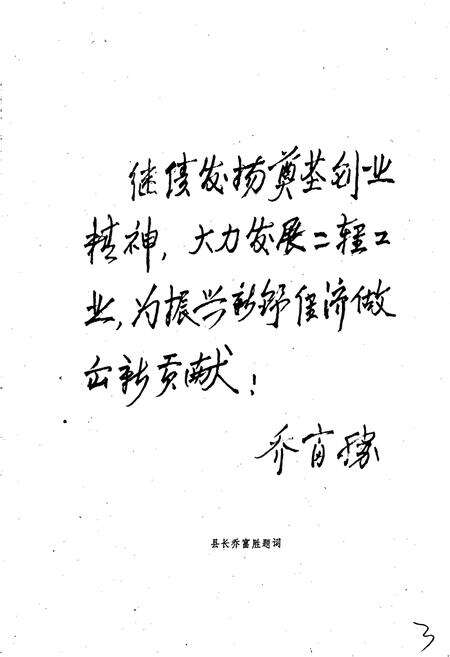 继续发扬奠基创业
精神，大力发展二轻工
业，为振兴新野经济做
出新贡献！
乔富胜
县长乔富胜题词
3